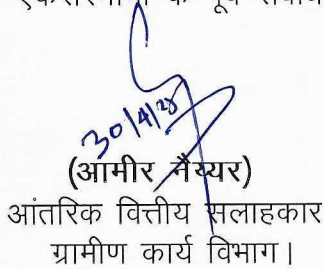 के पूर्व
30/4/25
(आमीर नैय्यर)
आंतरिक वित्तीय सलाहकार
ग्रामीण कार्य विभाग।